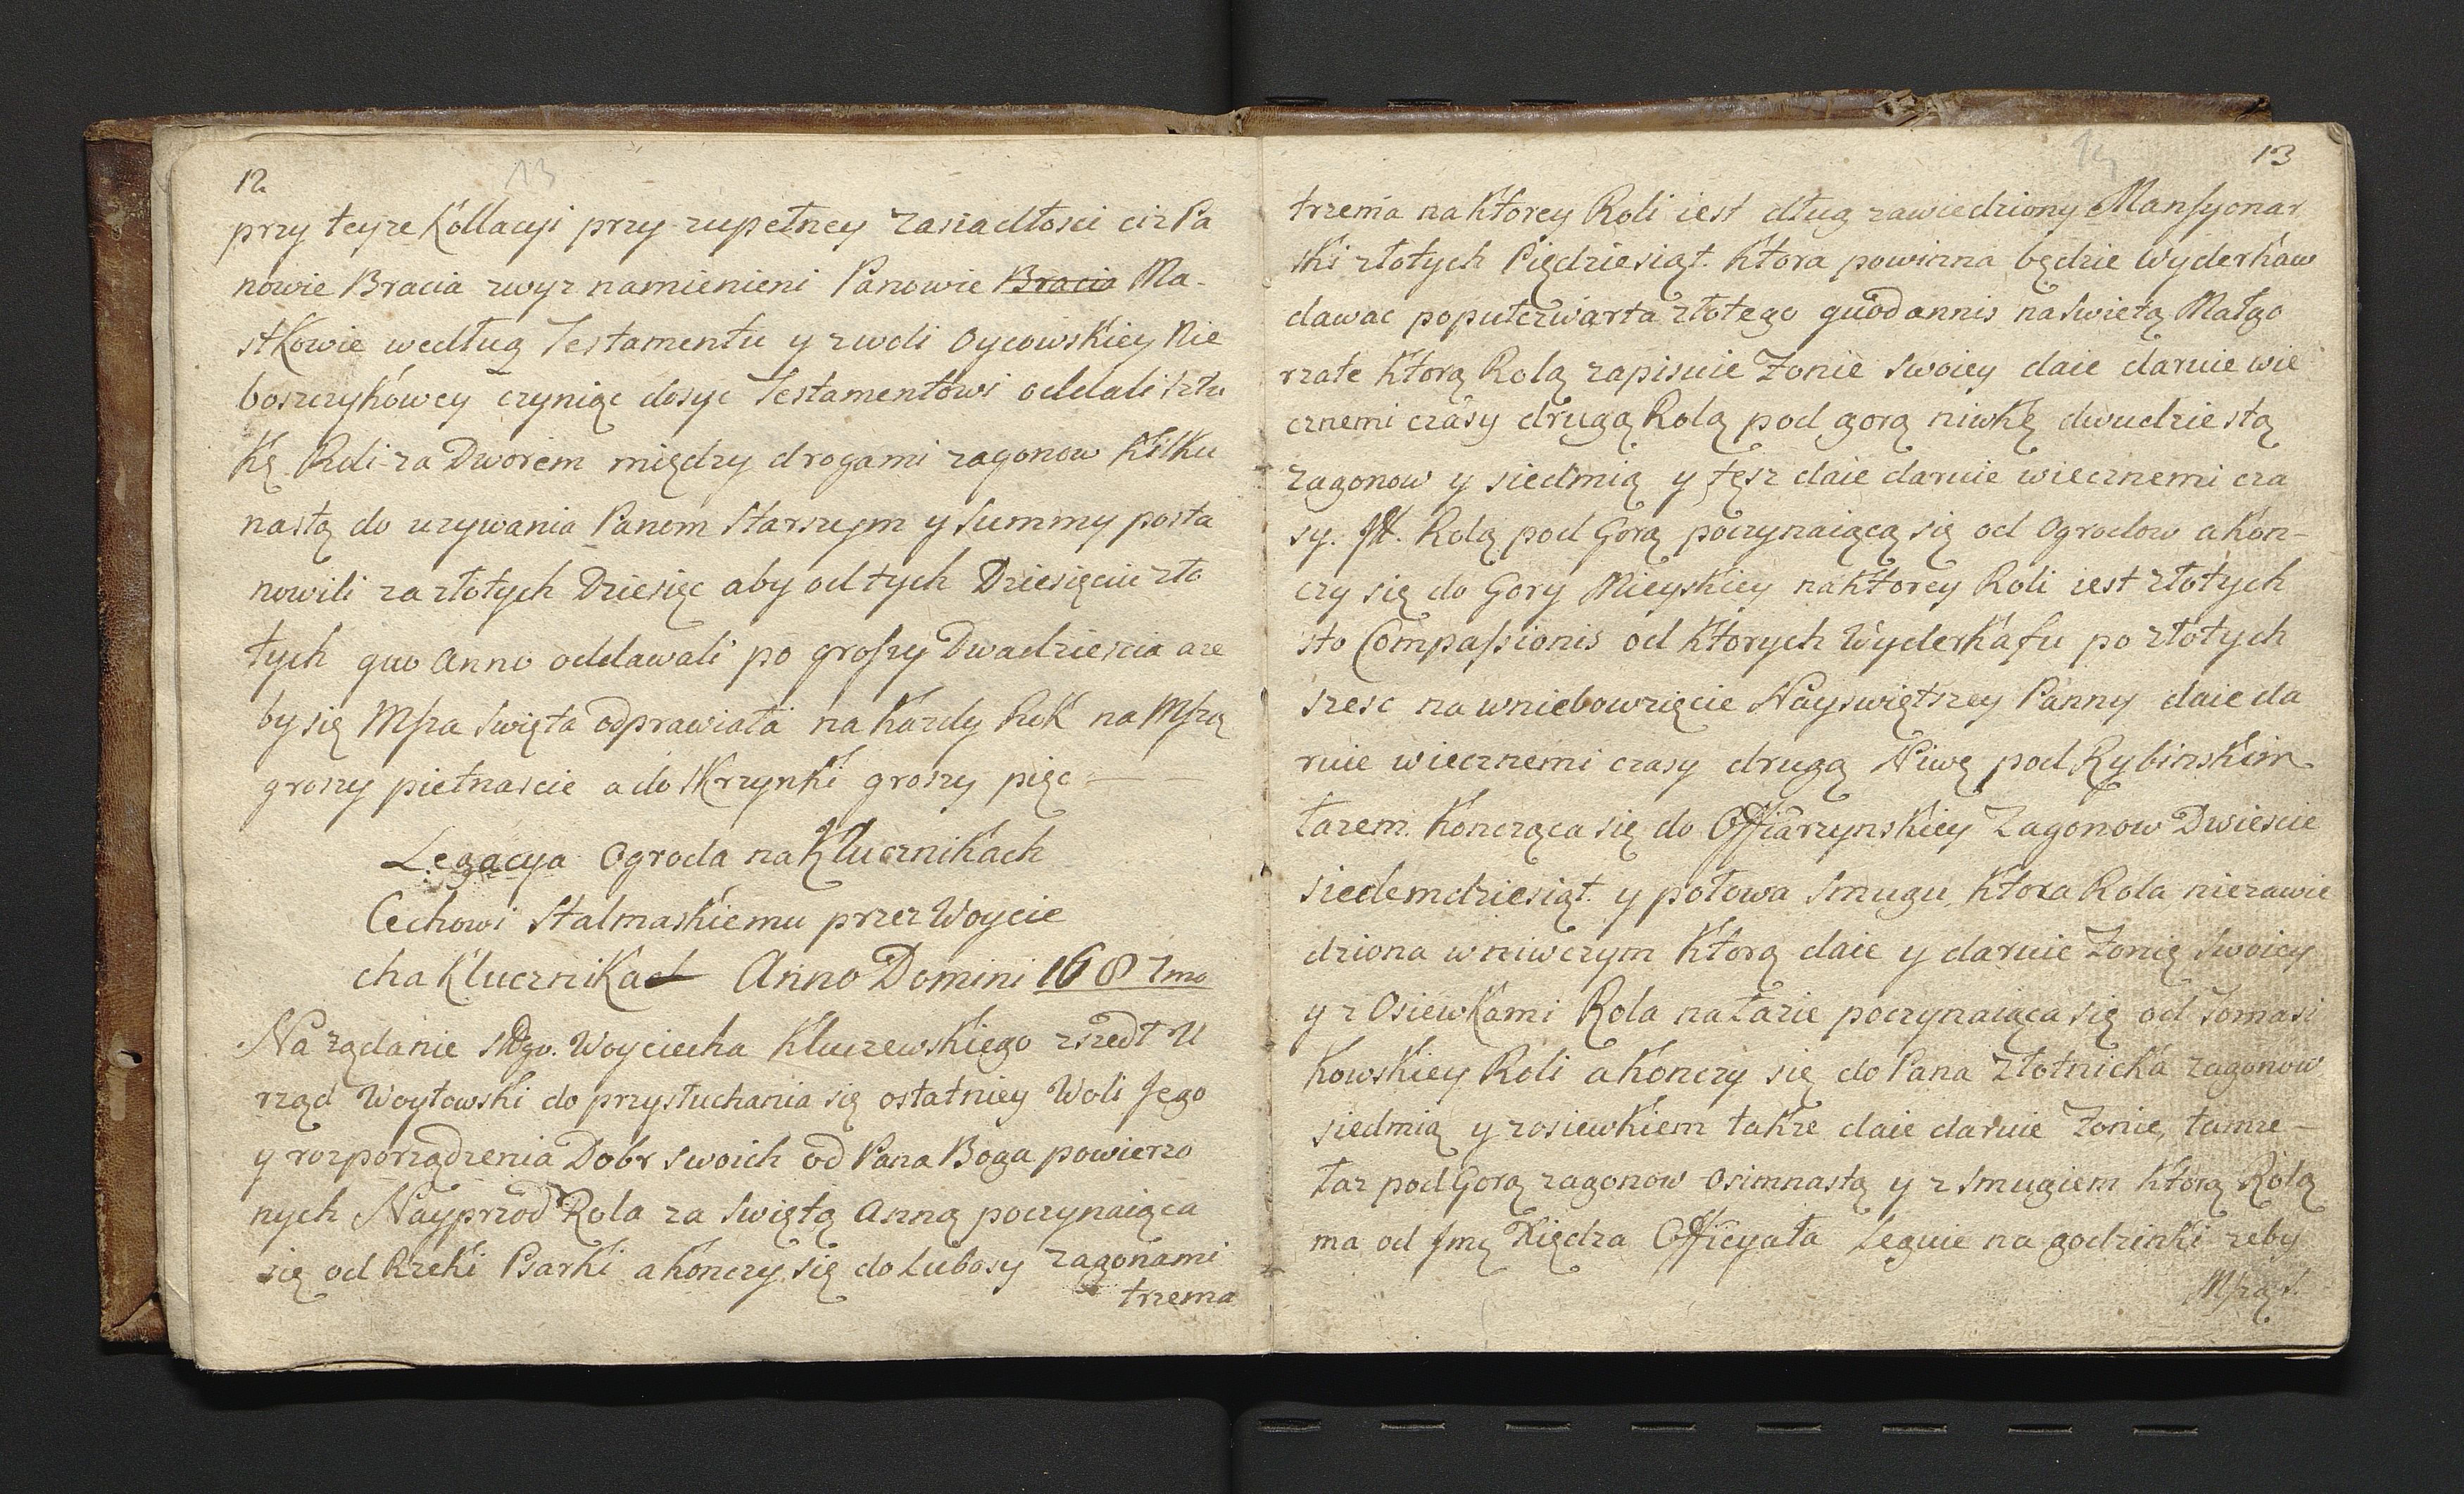 12
13
przy teyze Kollacyi przy zupełney zasiadłosci ciz Pa
nowie Bracia zwyz namienieni Panowie Bracia Ma-
stkowie według Testamentu y zwoli Oycowskiey Nie
boszczykowey czyniąc dosyc Testamentowi oddali sztu
kę Roli za Dworem między drogami zagonow kilku
nastą do uzywania Panom Starszym y Summy posta
nowili za złotych Dziesięc aby od tych Dziesięciu zło
tych quo Anno oddawali po groszy Dwadziescia aze
by się Msza Swięta odprawiała na kazdy Rok na Mszą
groszy pietnascie a do skrzynki groszy pięc
Legacya Ogroda na Klucznikach
Cechowi Stalmaskiemu przez Woycie
cha Klucznika Anno Domini 1687mo
Na ządanie Woyciecha Kluczewskiego zszedł U
rząd Woytowski do przysłuchania się ostatniey Woli Jego
y rozporządzenia Dobr swoich od Pana Boga powierzo
nych Nayprzod Rola za Swiętą Anną poczynaiąca
się od Rzeki Psarki a konczy się do Lubosy zagonami
trzema
14
13
trzema na ktorey Roli iest dług zawiedziony Mansyonar
ski złotych Pięcdziesiąt. ktora powinna będzie Wyderkaw
dawac poputczwarta złotego quod annis na swietą Małgo
rzate ktorą Rolą zapisuie Zonie swoiey daie daruie wie
cznemi czasy drugą Rolą pod gorą niwkę dwudziestą
zagonow y siedmią y tęsz daie daruie wiecznemi cza
sy. Jt. Rolą pod Gorą poczynaiącą się od Ogrodow a kon-
czy się do Gory Mieyskiey na ktorey Roli iest złotych
sto Compassionis od ktorych Wyderkafu po złotych
szesc na wniebowzięcie Nayswiętszey Panny daie da
ruie wiecznemi czasy drugą Niwę pod Rybinskim
Łazem. koncząca się do Officarzynskiey Zagonow Dwiescie
siedemdziesiąt. y połowa Smugu, ktora Rola niezawie
dziona w niwczym ktorą daie y daruie Zonię swoiey
y z Osiewkami Rola na Łazie poczynaiąca się od Tomasi
kowskiey Roli a konczy się do Pana Złotnicka zagonow
siedmią y zosiewkiem takze daie daruie Zonie, tamze-
Łaz pod Gorą zagonow osimnastą y z Smugiem ktorą Rolą
ma od Jmę Xiędza Officyała Leguie na godzinki zeby
Mszą S.